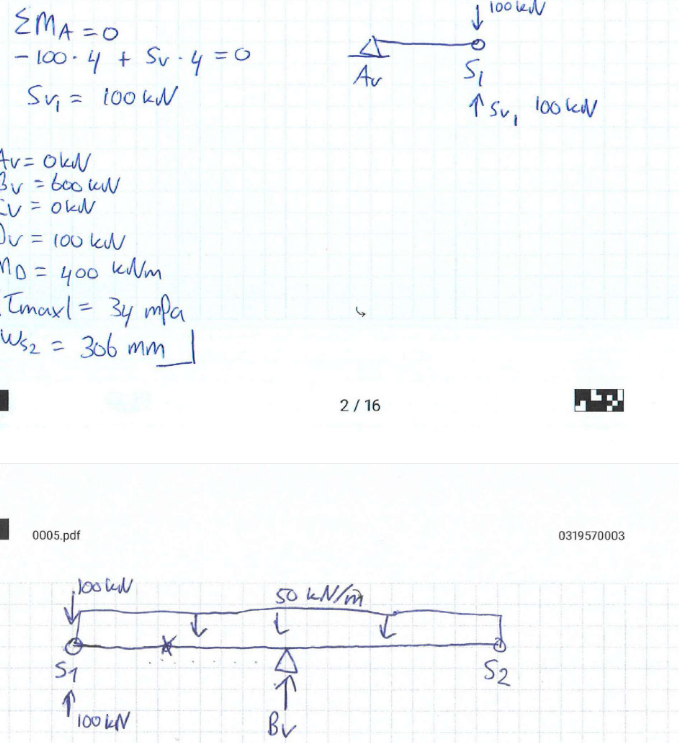 ΣM_A = 0
100 kN
-100 · 4 + Sv · 4 = 0
Av
S1
Sv1 = 100 kN
Sv1 100 kN
Av = 0 kN
Bv = 600 kN
Cv = 0 kN
Dv = 100 kN
M_D = 400 kNm
|τmax| = 34 mpa
W_S2 = 306 mm
2 / 16
0005.pdf
0319570003
100 kN
50 kN/m
S1
S2
100 kN
Bv